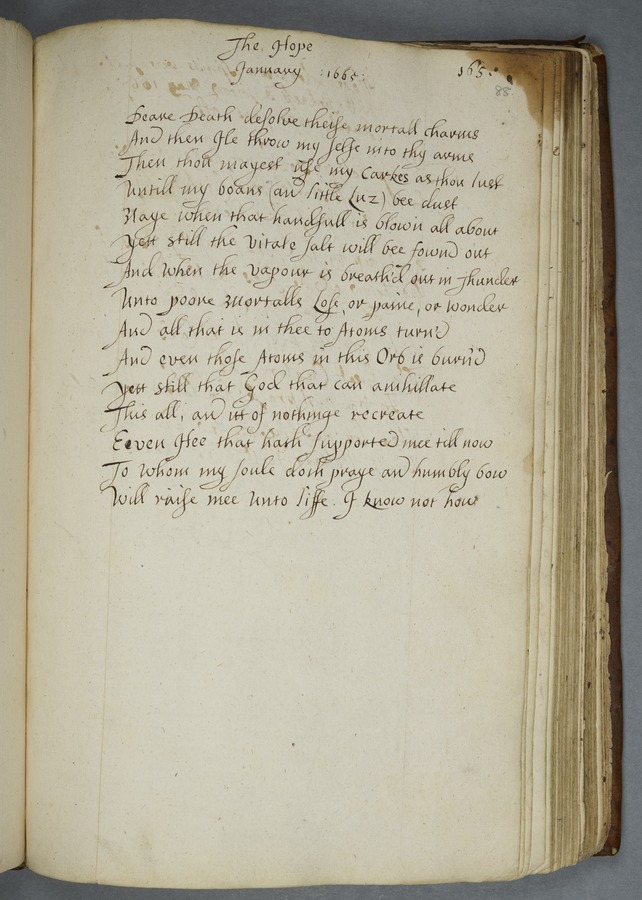 The Hope
January :1665:
165:
88
Deare Death desolve theise mortall charms
And then Ile throw my selfe into thy arms
Then thou mayest use my Carkes as thou lust
Untill my boans (and little Luz) bee dust
Naye when that handfull is blown all about
yett still the vitale salt will bee found out
And when the vapour is breath'd out in Thunder
Unto poore Mortalls Lose, or paine, or wonder
And all that is in thee to Atoms turn'd
And even those Atoms in this Orb is burn'd
yett still that God that can anihillate
This all, and itt of nothinge recreate
Eeven Hee that hath supported mee till now
To whom my soule doth praye and humbly bow
Will raise mee unto liffe. I know not how